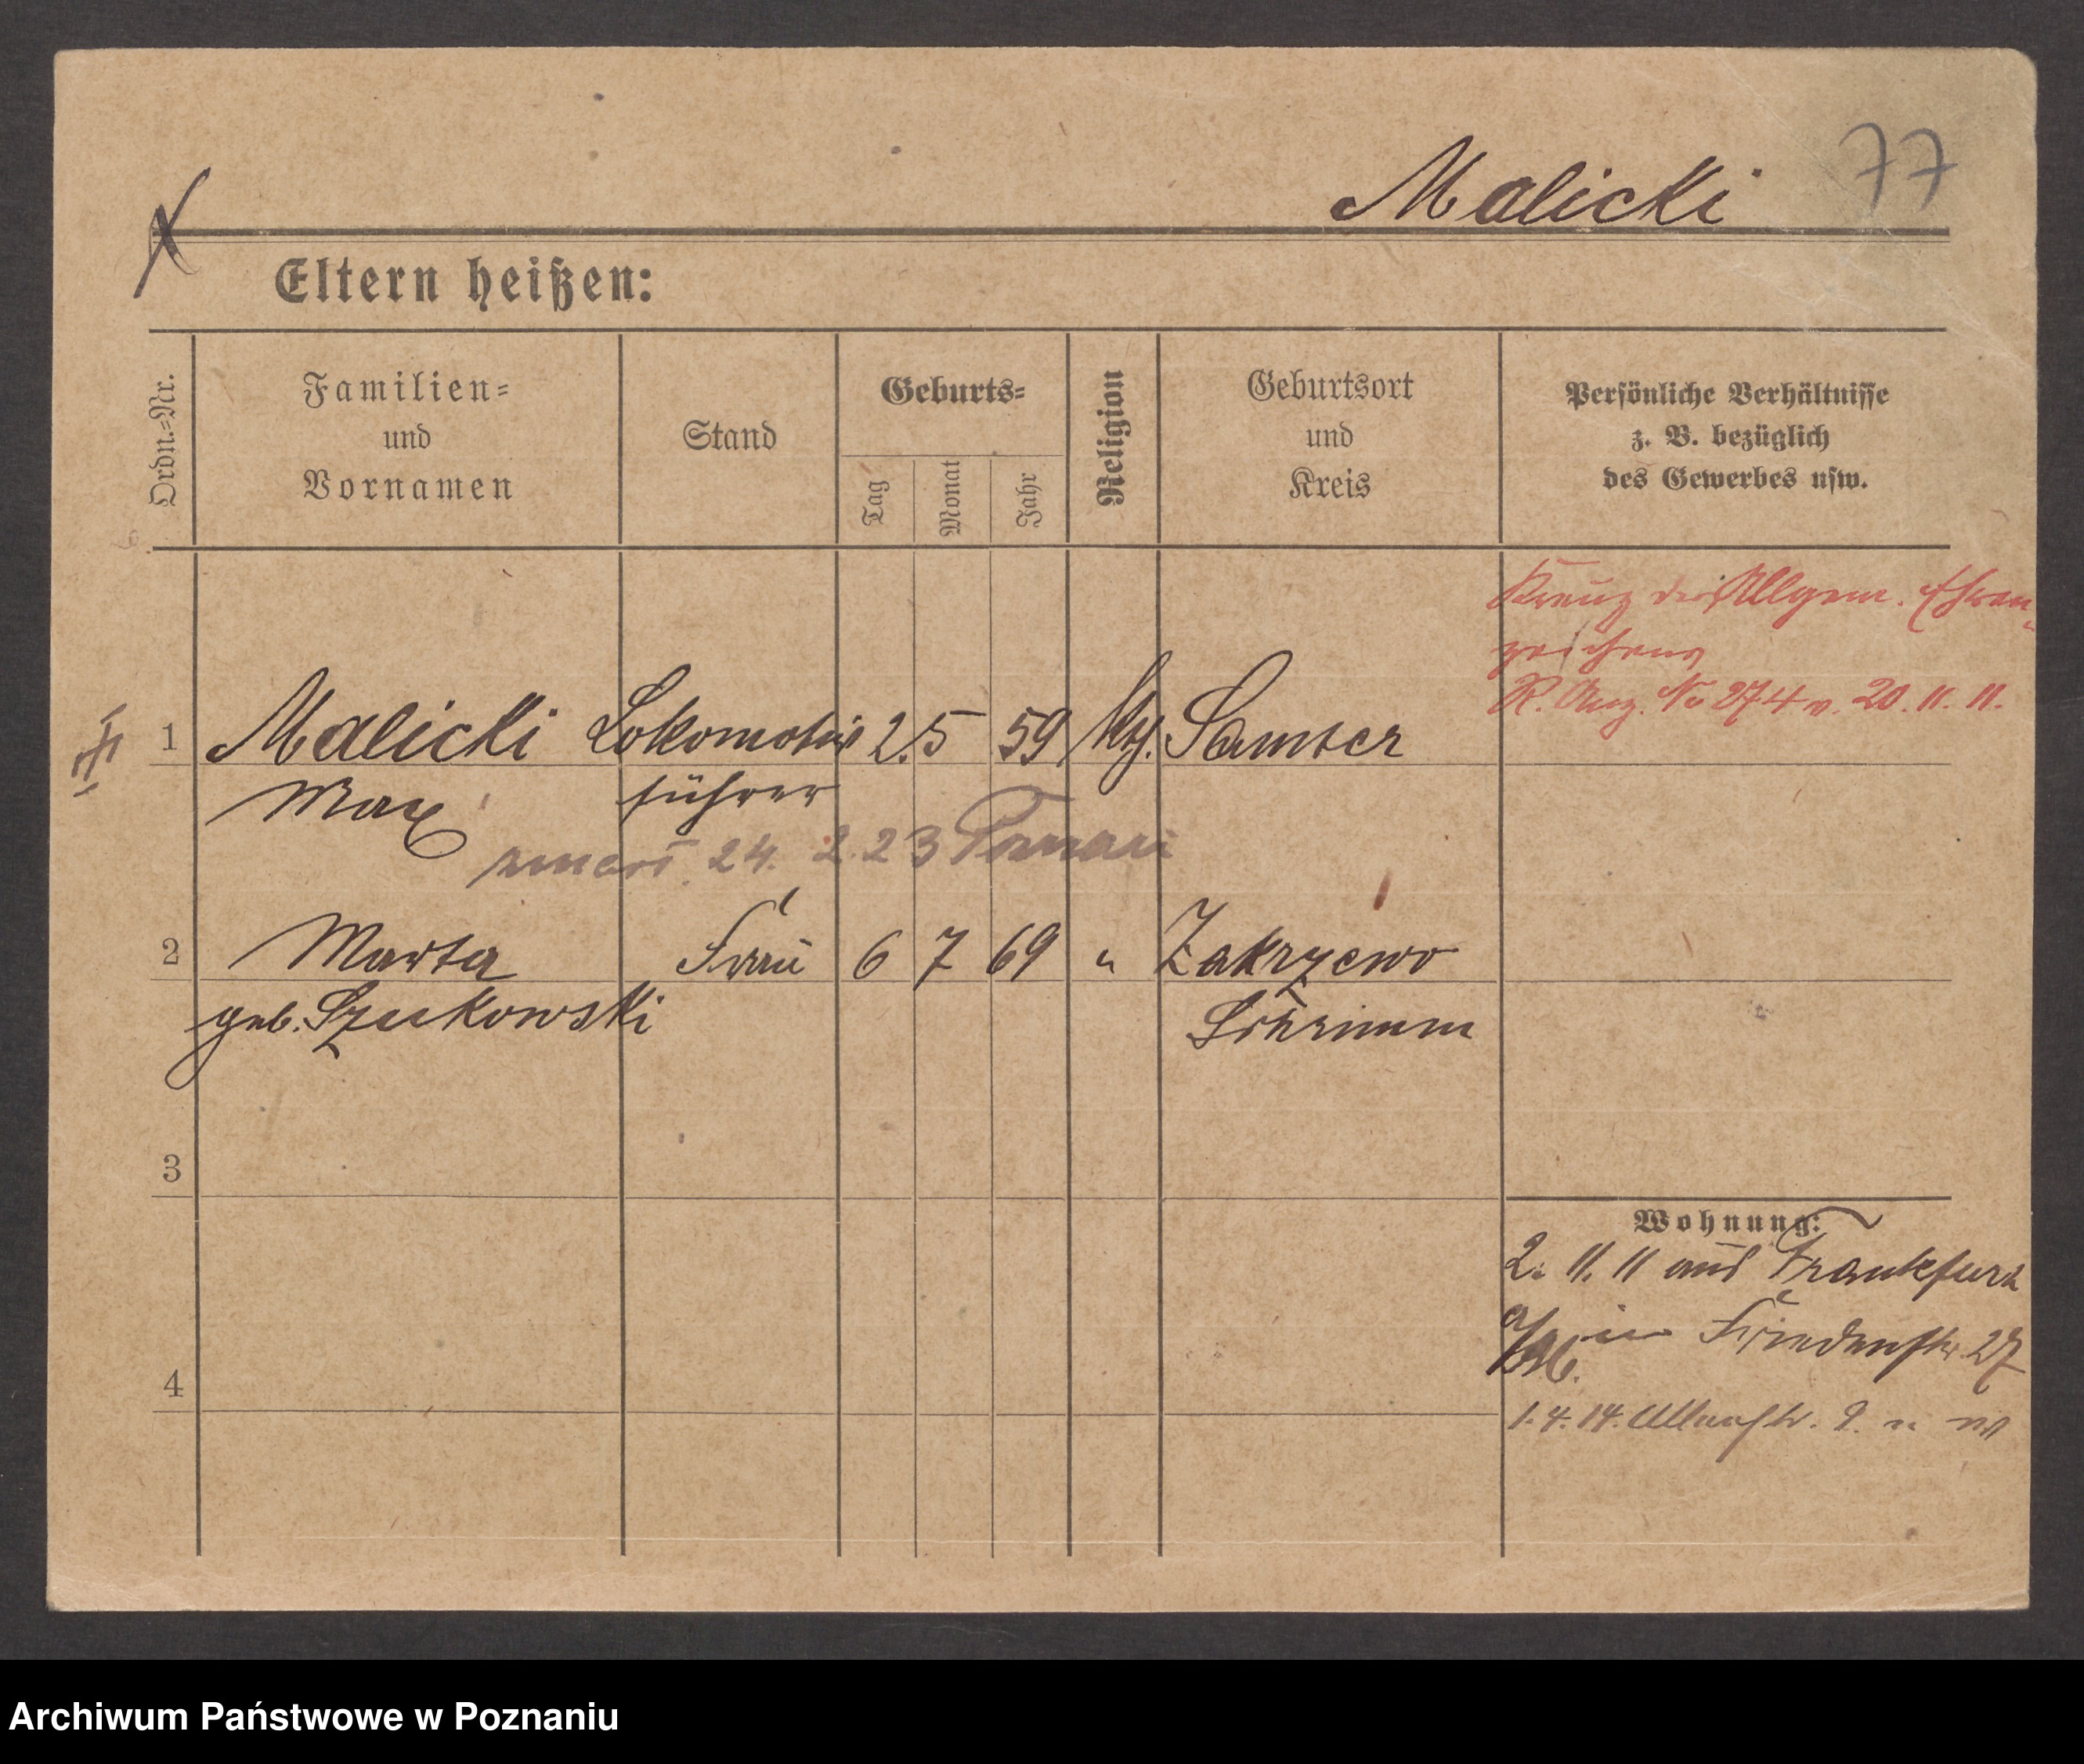 77
Malicki
Eltern heißen:
Ordn.=Nr.
Familien=
und
Vornamen
Stand
Geburts=
Tag
Monat
Jahr
Religion
Geburtsort
und
Kreis
Persönliche Verhältnisse
z. B. bezüglich
des Gewerbes usw.
Kreuz des Allgem. Ehren-
zeichens
R. Anz. No 274 v. 20. 11. 11.
1 Malicki Lokomotiv 2. 5 59 kth. Samter
Max führer
zmarł 24. 2. 23 Poznań
2 Marta Frau 6 7 69 " Zakrzewo
geb. Szukowski Schrimm
3
Wohnung:
2. 11. 11 aus Frankfurt
a/ in Friedenstr 27
4
1. 4. 14. 9.
Archiwum Państwowe w Poznaniu